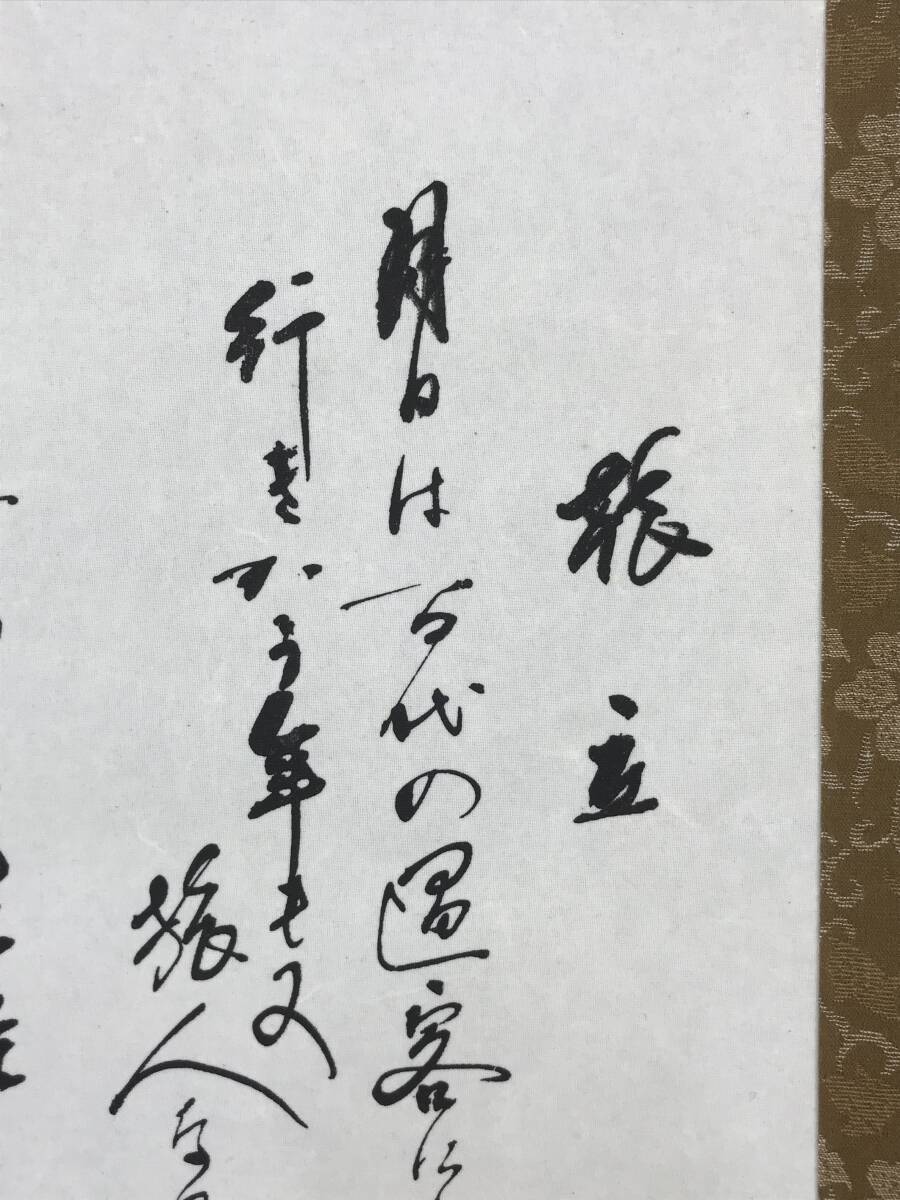 旅立
月日は百代の過客に
行きかう年も又
旅人な